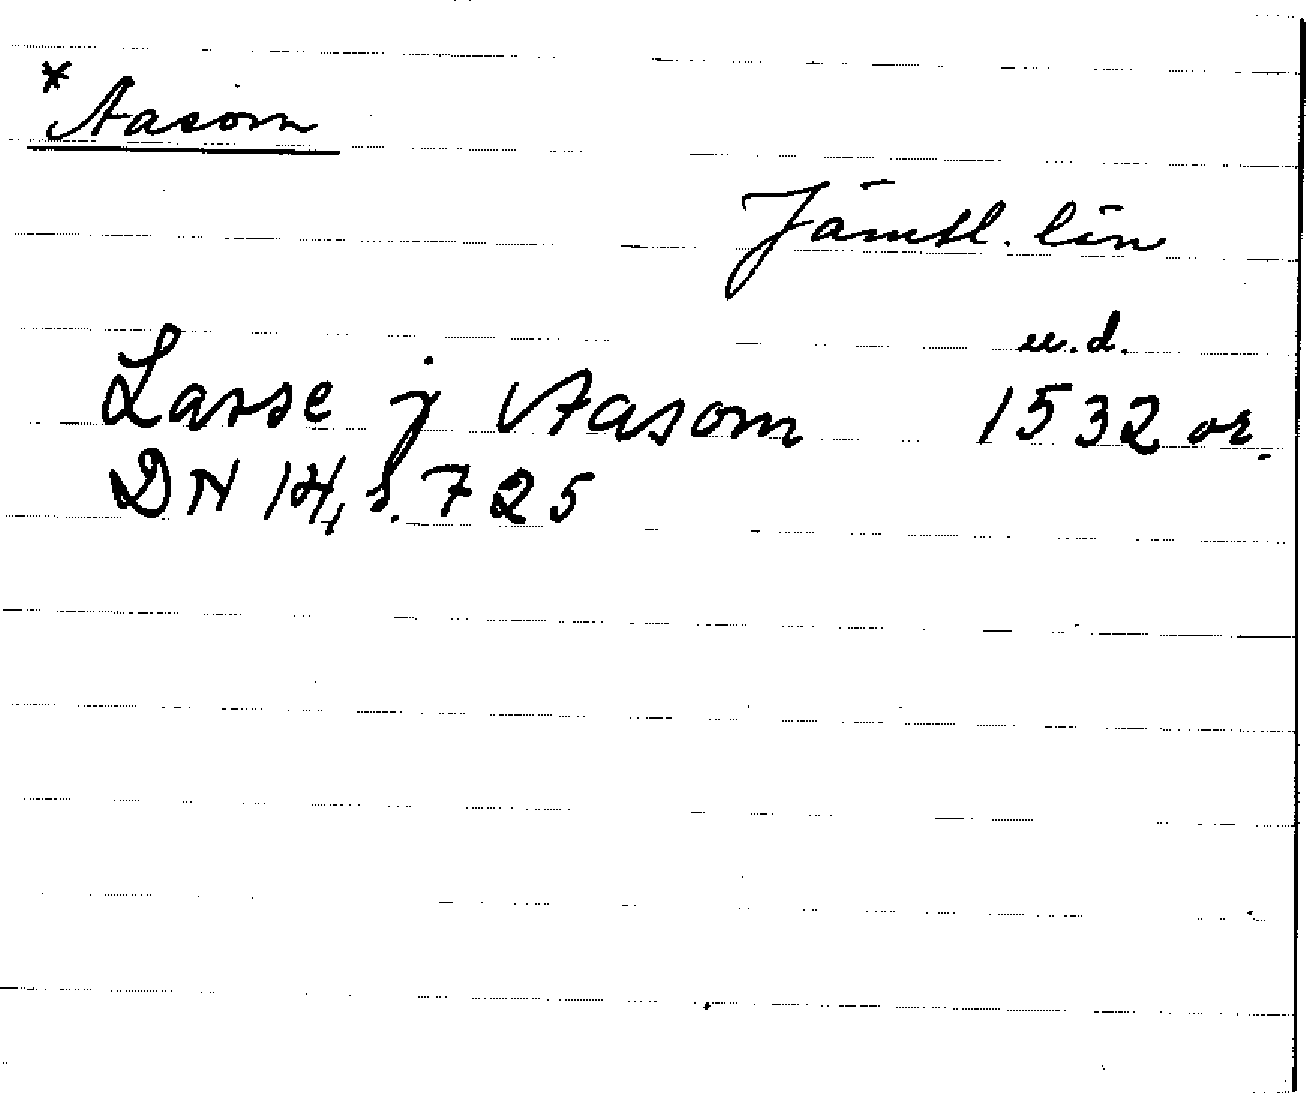 * Aasom
Jämtl. län
u.d.
Lasse j Aasom 1532 or.
DN 14, s. 725